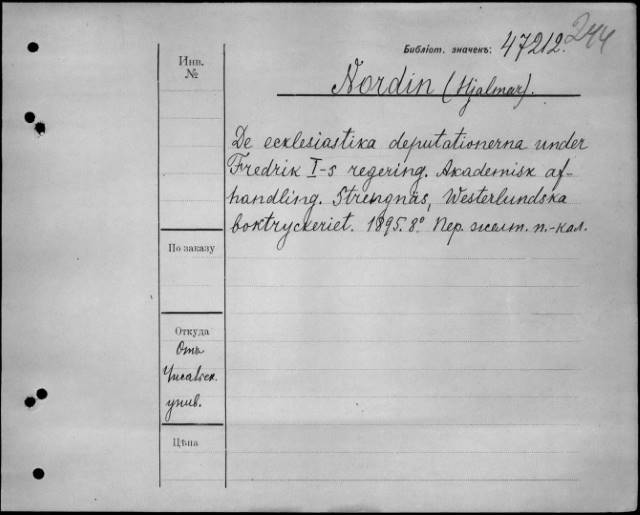 244
Библіот. значекъ: 47212.
Инв.
№
Nordin (Hjalmar).
De ecklesiastika deputationerna under
Fredrik I-s regering. Akademisk af-
handling. Strengnäs, Westerlundska
boktryckeriet. 1895. 8° Пер. желт. п.-кал.
По заказу
Откуда
Отъ
унив.
Цѣна